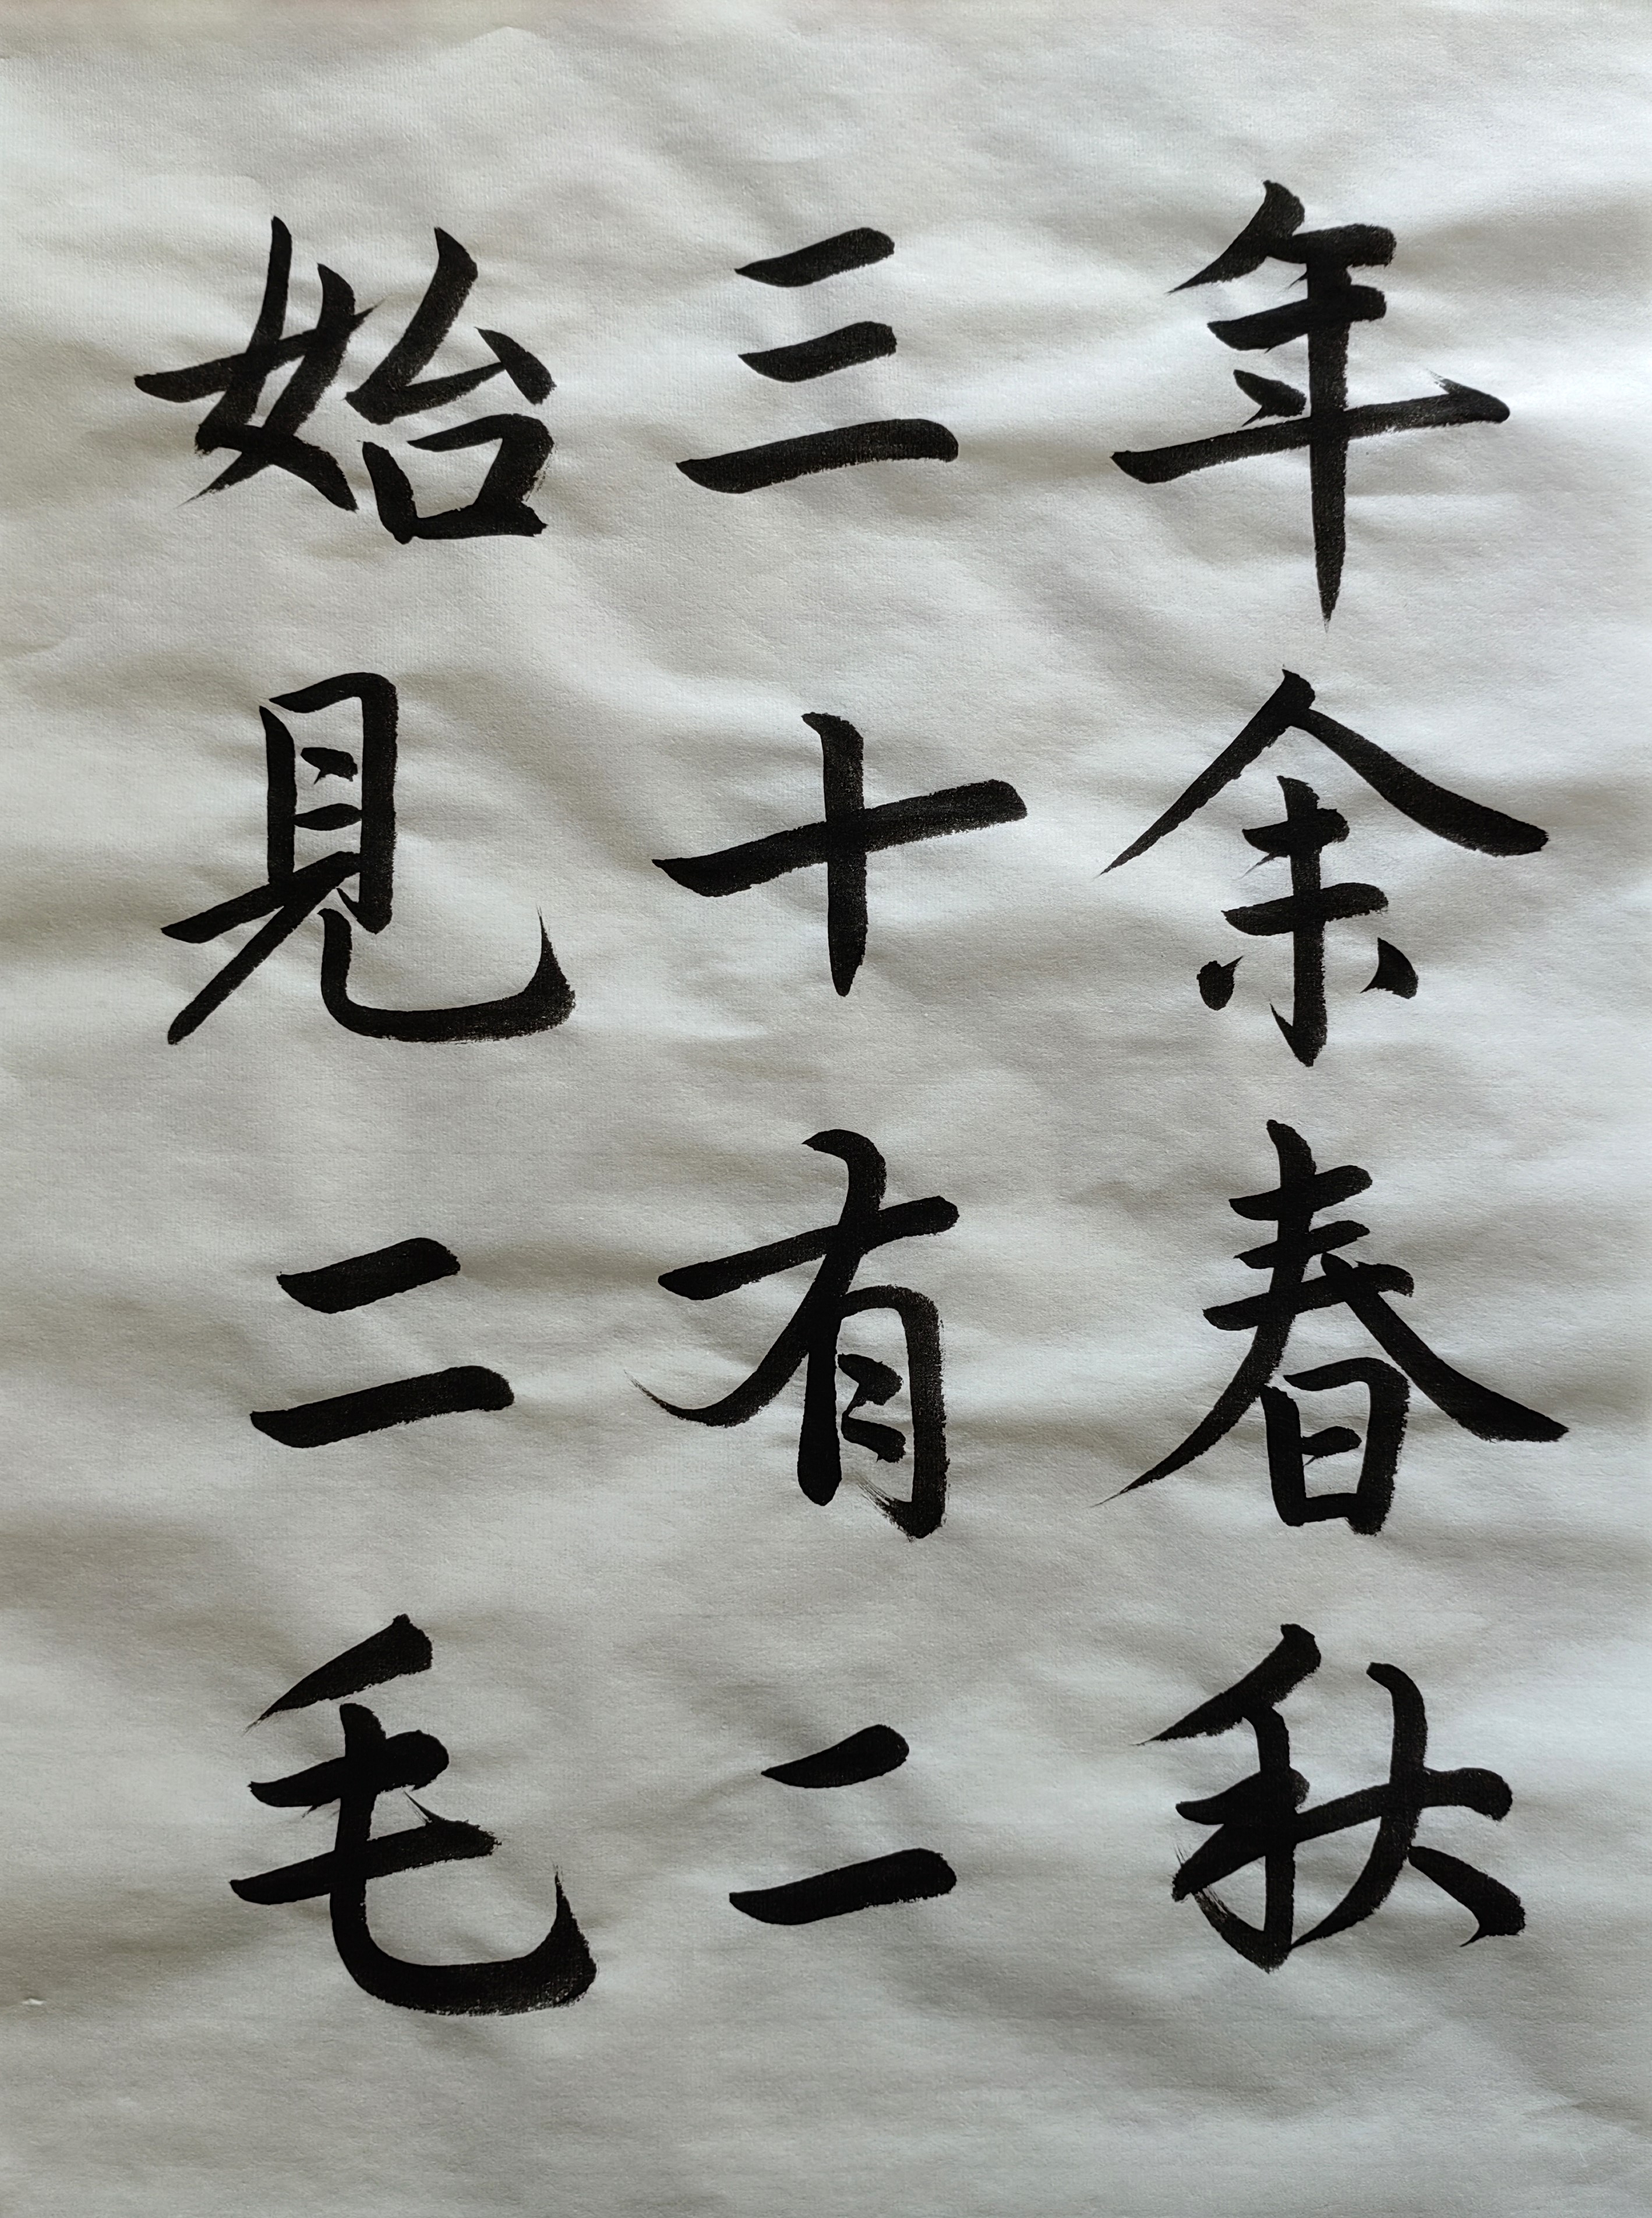 年余春秋
三十有二
始見二毛